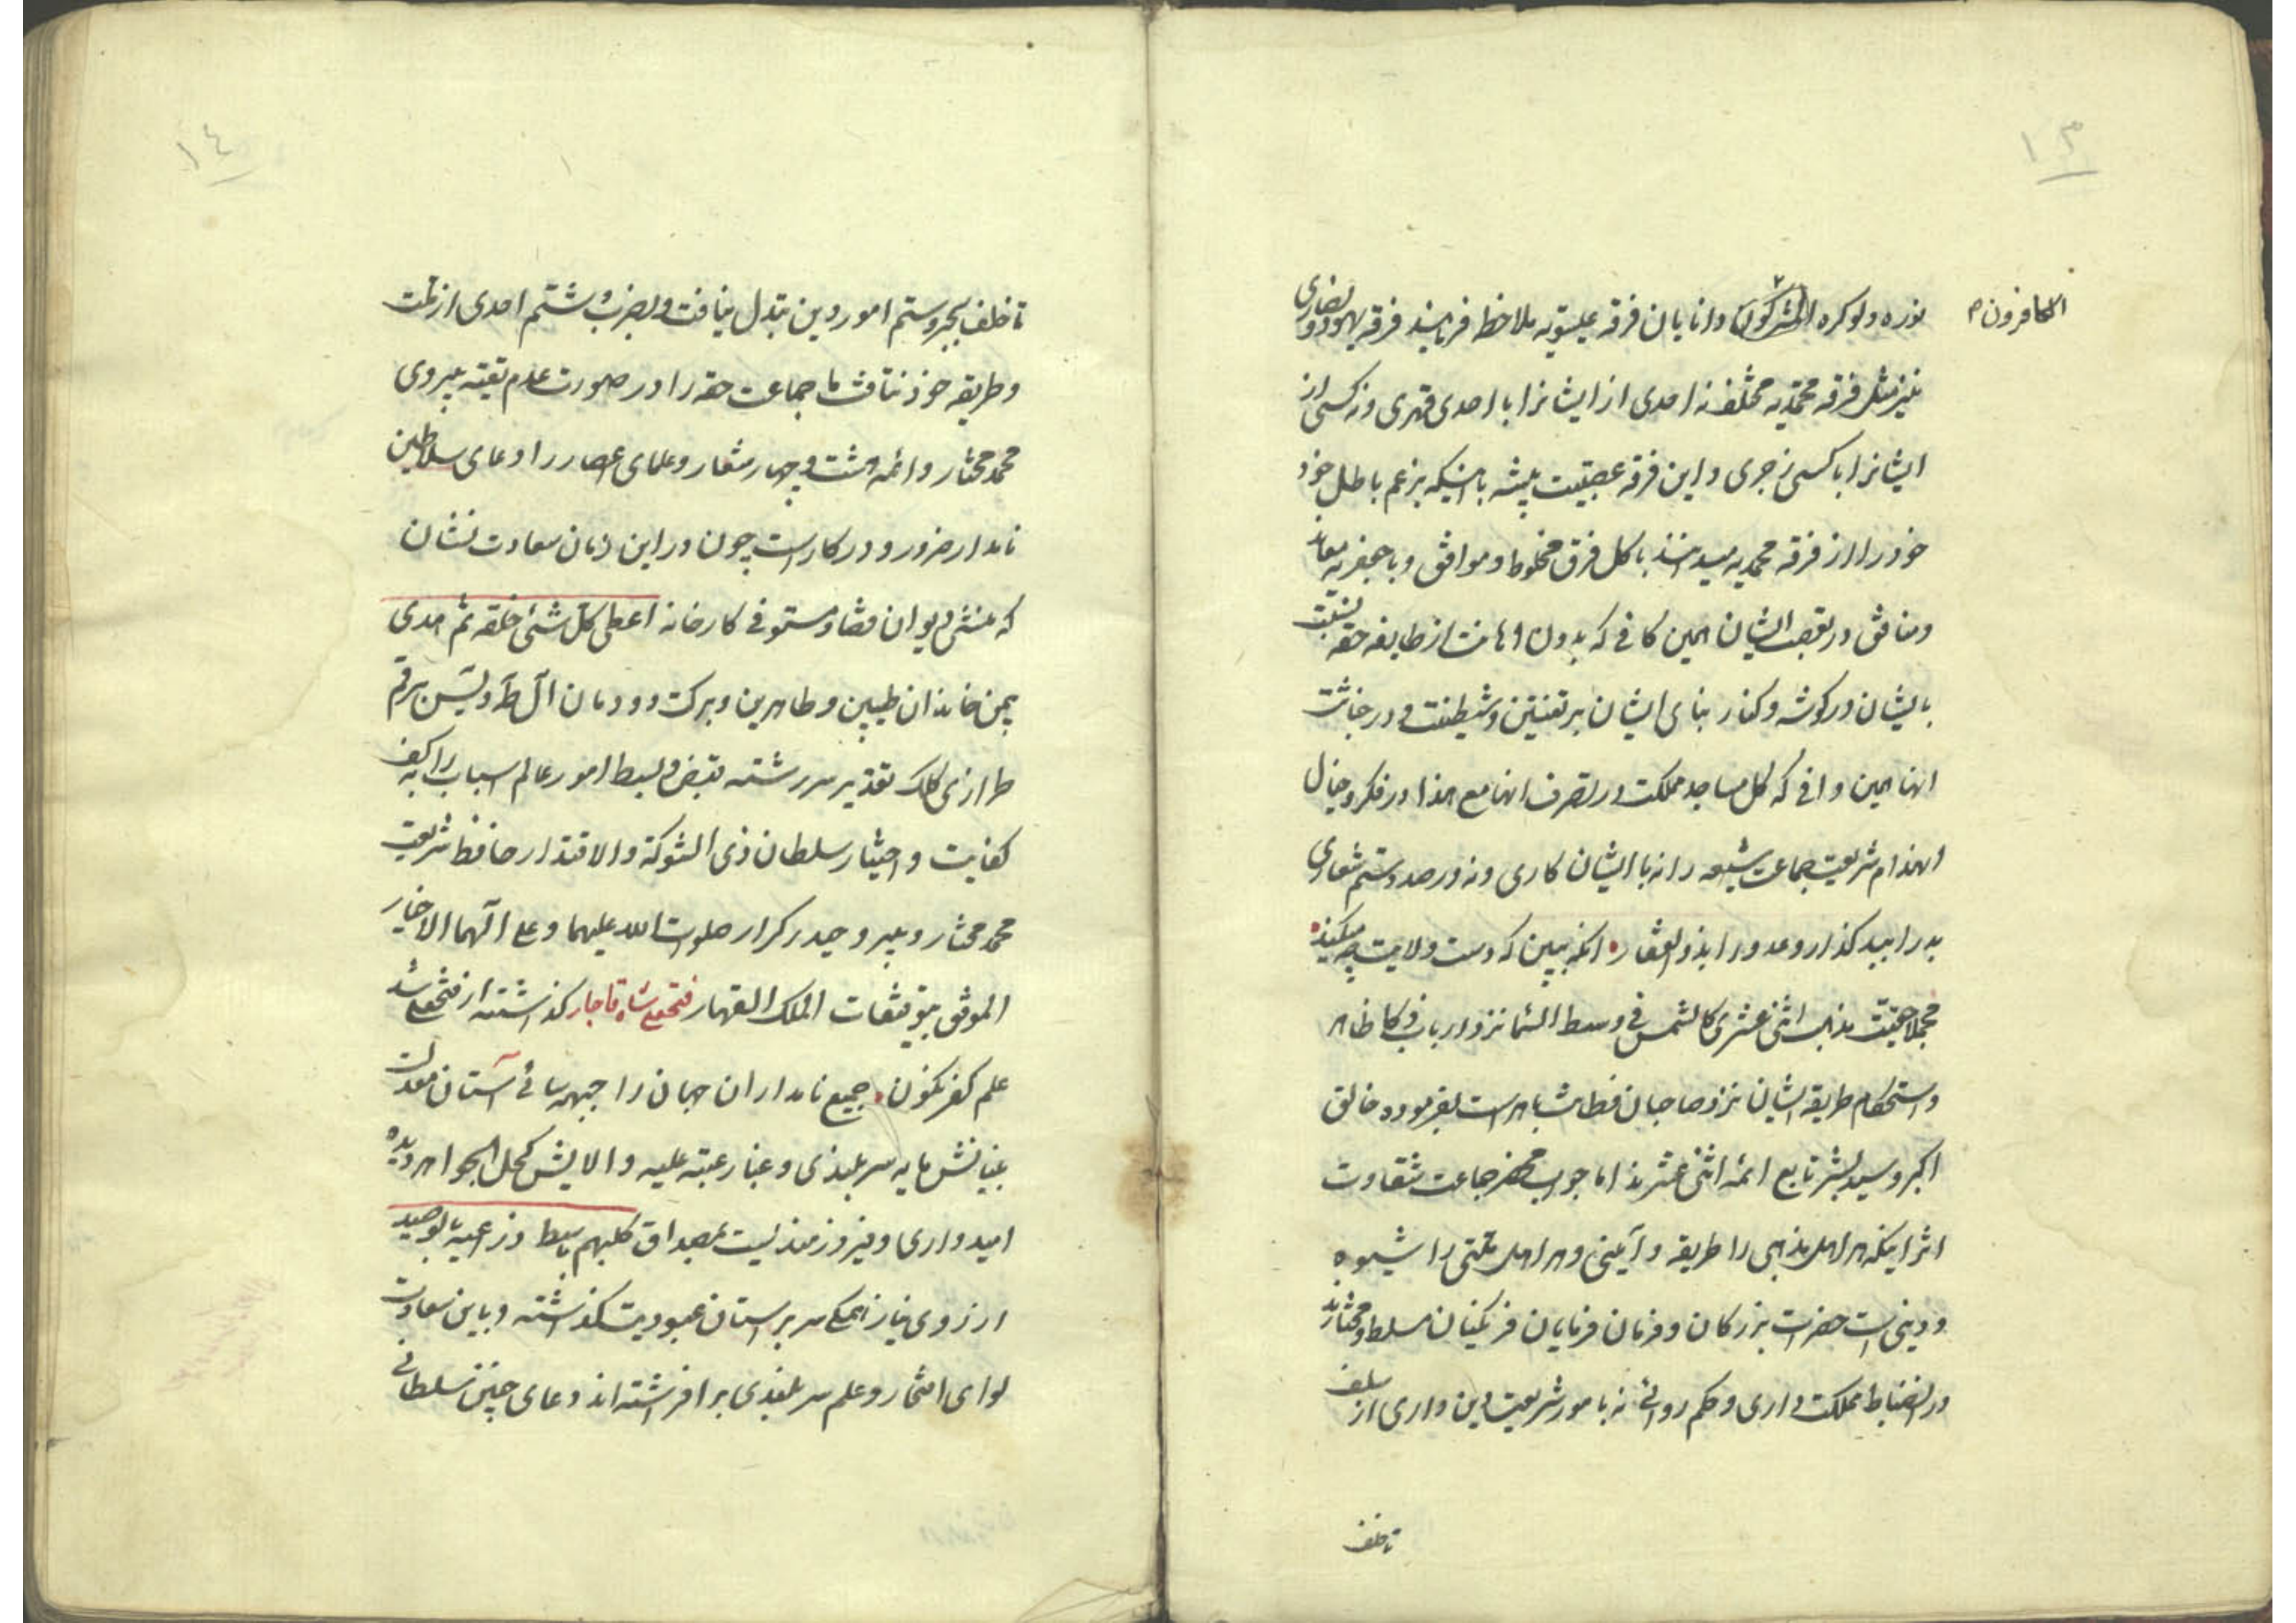 ١٣
الکافرون م
نوره ولو کره المشرکون و دانایان فرقه عیسویه ملاحظه فرمایند فرقه یهود و نصاری
نیز مثل فرقه محمدیه مختلف نه احدی از ایشانرا با احدی قهری و نه کسی از
ایشانرا با کسی زجری و این فرقه عصبیت پیشه با اینکه بزعم باطل خود
خود را از فرقه محمدیه میدانند با کل فرق مخلوط و موافق و با جعفریه معاند
و منافق در تعصب ایشان همین کافی که بدون اهانت از طایفه حقه نسبت
بایشان در کوشه و کنار بنای ایشان بر تفتین و شیطنت و در خباثت
انها همین وافی که کل مساجد مملکت در تصرف انها مع هذا در فکر و خیال
انهدام شریعت جماعت شیعه را نه با ایشان کاری و نه در صدد ستم شعاری
بد را ببد کذار و عدو را بذوالفقار انکه ببین که دست ولایت چه میکند
مجملا حقیت مذهب اثنی عشری کالشمس فی وسط السما نزد ارباب ذکا ظاهر
و استحکام طریقه ایشان نزد صاحبان فطانت باهر است بفرموده خالق
اکبر و سید بشر تابع ائمه اثنی عشرند اما جواب محضر جماعت شقاوت
اثر اینکه هر اهل مذهبی را طریقه و آیینی و هر اهل ملتی را شیوه
و دینی است حضرات بزرکان و فرمان فرمایان فرنکیان مسلط و مختارند
در انضباط مملکت داری و حکم روائی نه بامور شریعت دین داری از سلف
تا خلف
١٤
تا خلف بجبر و ستم امور دین تبدل نیافت و بضرب و شتم احدی از ملت
و طریقه خود نتافت ما جماعت حقه را در صورت عدم تقیه پیروی
محمد مختار و ائمه هشت و چهار متعار و علمای اعصار را دعای سلاطین
نامدار ضرور و درکار است چون در این زمان سعادت نشان
که منشی دیوان قضا و مستوفی کارخانه اعطی کل شئ خلقه ثم هدی
بیمن خاندان طیبین و طاهرین و برکت دودمان آل طه و یس برقم
طرازی کلک تقدیر سررشته قبض و بسط امور عالم اسباب را بکف
کفایت و اختیار سلطان ذی الشوکة والاقتدار حافظ شریعت
محمد مختار و پیرو حیدر کرار صلوات الله علیهما و علی آلهما الاخیار
الموفق بتوفیقات الملک القهار فتحعلی شاه قاجار کذاشته از فتحعلی شد
علم کفر نکون جمیع نامداران جهان را جبهه سائی آستان معدلت
بنیانش مایه سربلندی و غبار عتبه علیه والایش کحل الجواهر دیده
امیدواری و فیروزمندیست بمصداق کلبهم باسط ذراعیه بالوصید
ارزوی نیاز همکی سر بر استان عبودیت کذاشته و باین سعادت
لوای افتخار و علم سربلندی برافراشته اند دعای چنین سلطانی